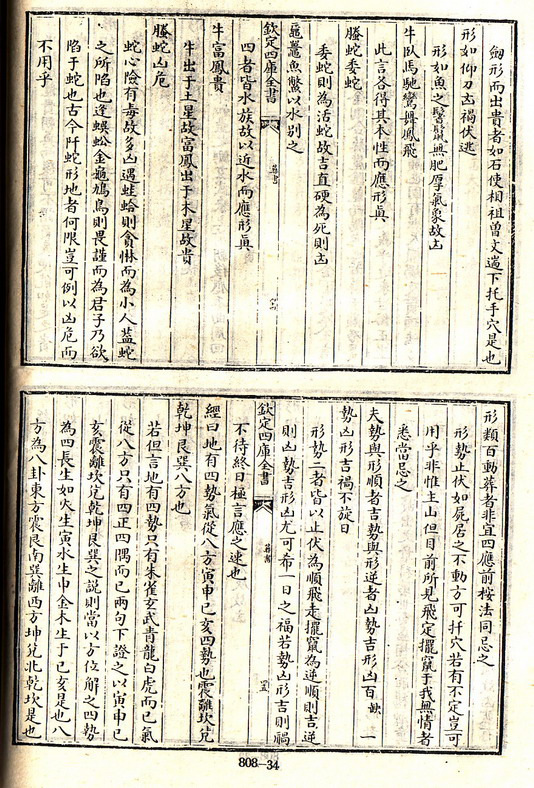 劔形而出貴者如石使相祖曽文遄下托手穴是也
形如仰刀㐫禍伏逃
形如魚之鬐鬛無肥厚氣象故㐫
牛臥馬馳鸞舞鳳飛
此言各得其本性而應形眞
騰蛇委蛇
委蛇則為活蛇故吉直硬為死則㐫
黿鼉魚鱉以水别之
欽定四庫全書
葬書
四者皆水族故以近水而應形眞
牛富鳳貴
牛出于土星故富鳳出于木星故貴
騰蛇凶危
蛇心險有毒故多凶遇蛙蛤則貪惏而為小人葢蛇
之所陷也逢蜈蚣金龜鳩鳥則畏謹而為君子乃欲
陷于蛇也古今阡蛇形地者何限豈可例以凶危而
不用乎
形類百動葬者非宜四應前按法同忌之
形勢止伏如屍居之不動方可扦穴若有不定豈可
用乎非惟主山但目前所見飛走擺竄于我無情者
悉當忌之
夫勢與形順者吉勢與形逆者凶勢吉形凶百缺一
勢凶形吉禍不旋日
形勢二者皆以止伏為順飛走擺竄為逆順則吉逆
則凶勢吉形凶尤可希一日之福若勢凶形吉則禍
欽定四庫全書
葬書
不待終日極言應之速也
經曰地有四勢氣從八方寅申巳亥四勢也震離坎兌
乾坤艮巽八方也
若但言地有四勢只有朱雀玄武青龍白虎而已氣
從八方只有四正四隅而已兩句下證之以寅申巳
亥震離坎兌乾坤艮巽之説則當以方位解之四勢
為四長生如火生寅水生申金木生于巳亥是也八
方為八卦東方震艮南巽離西方坤兌北乾坎是也
808-34